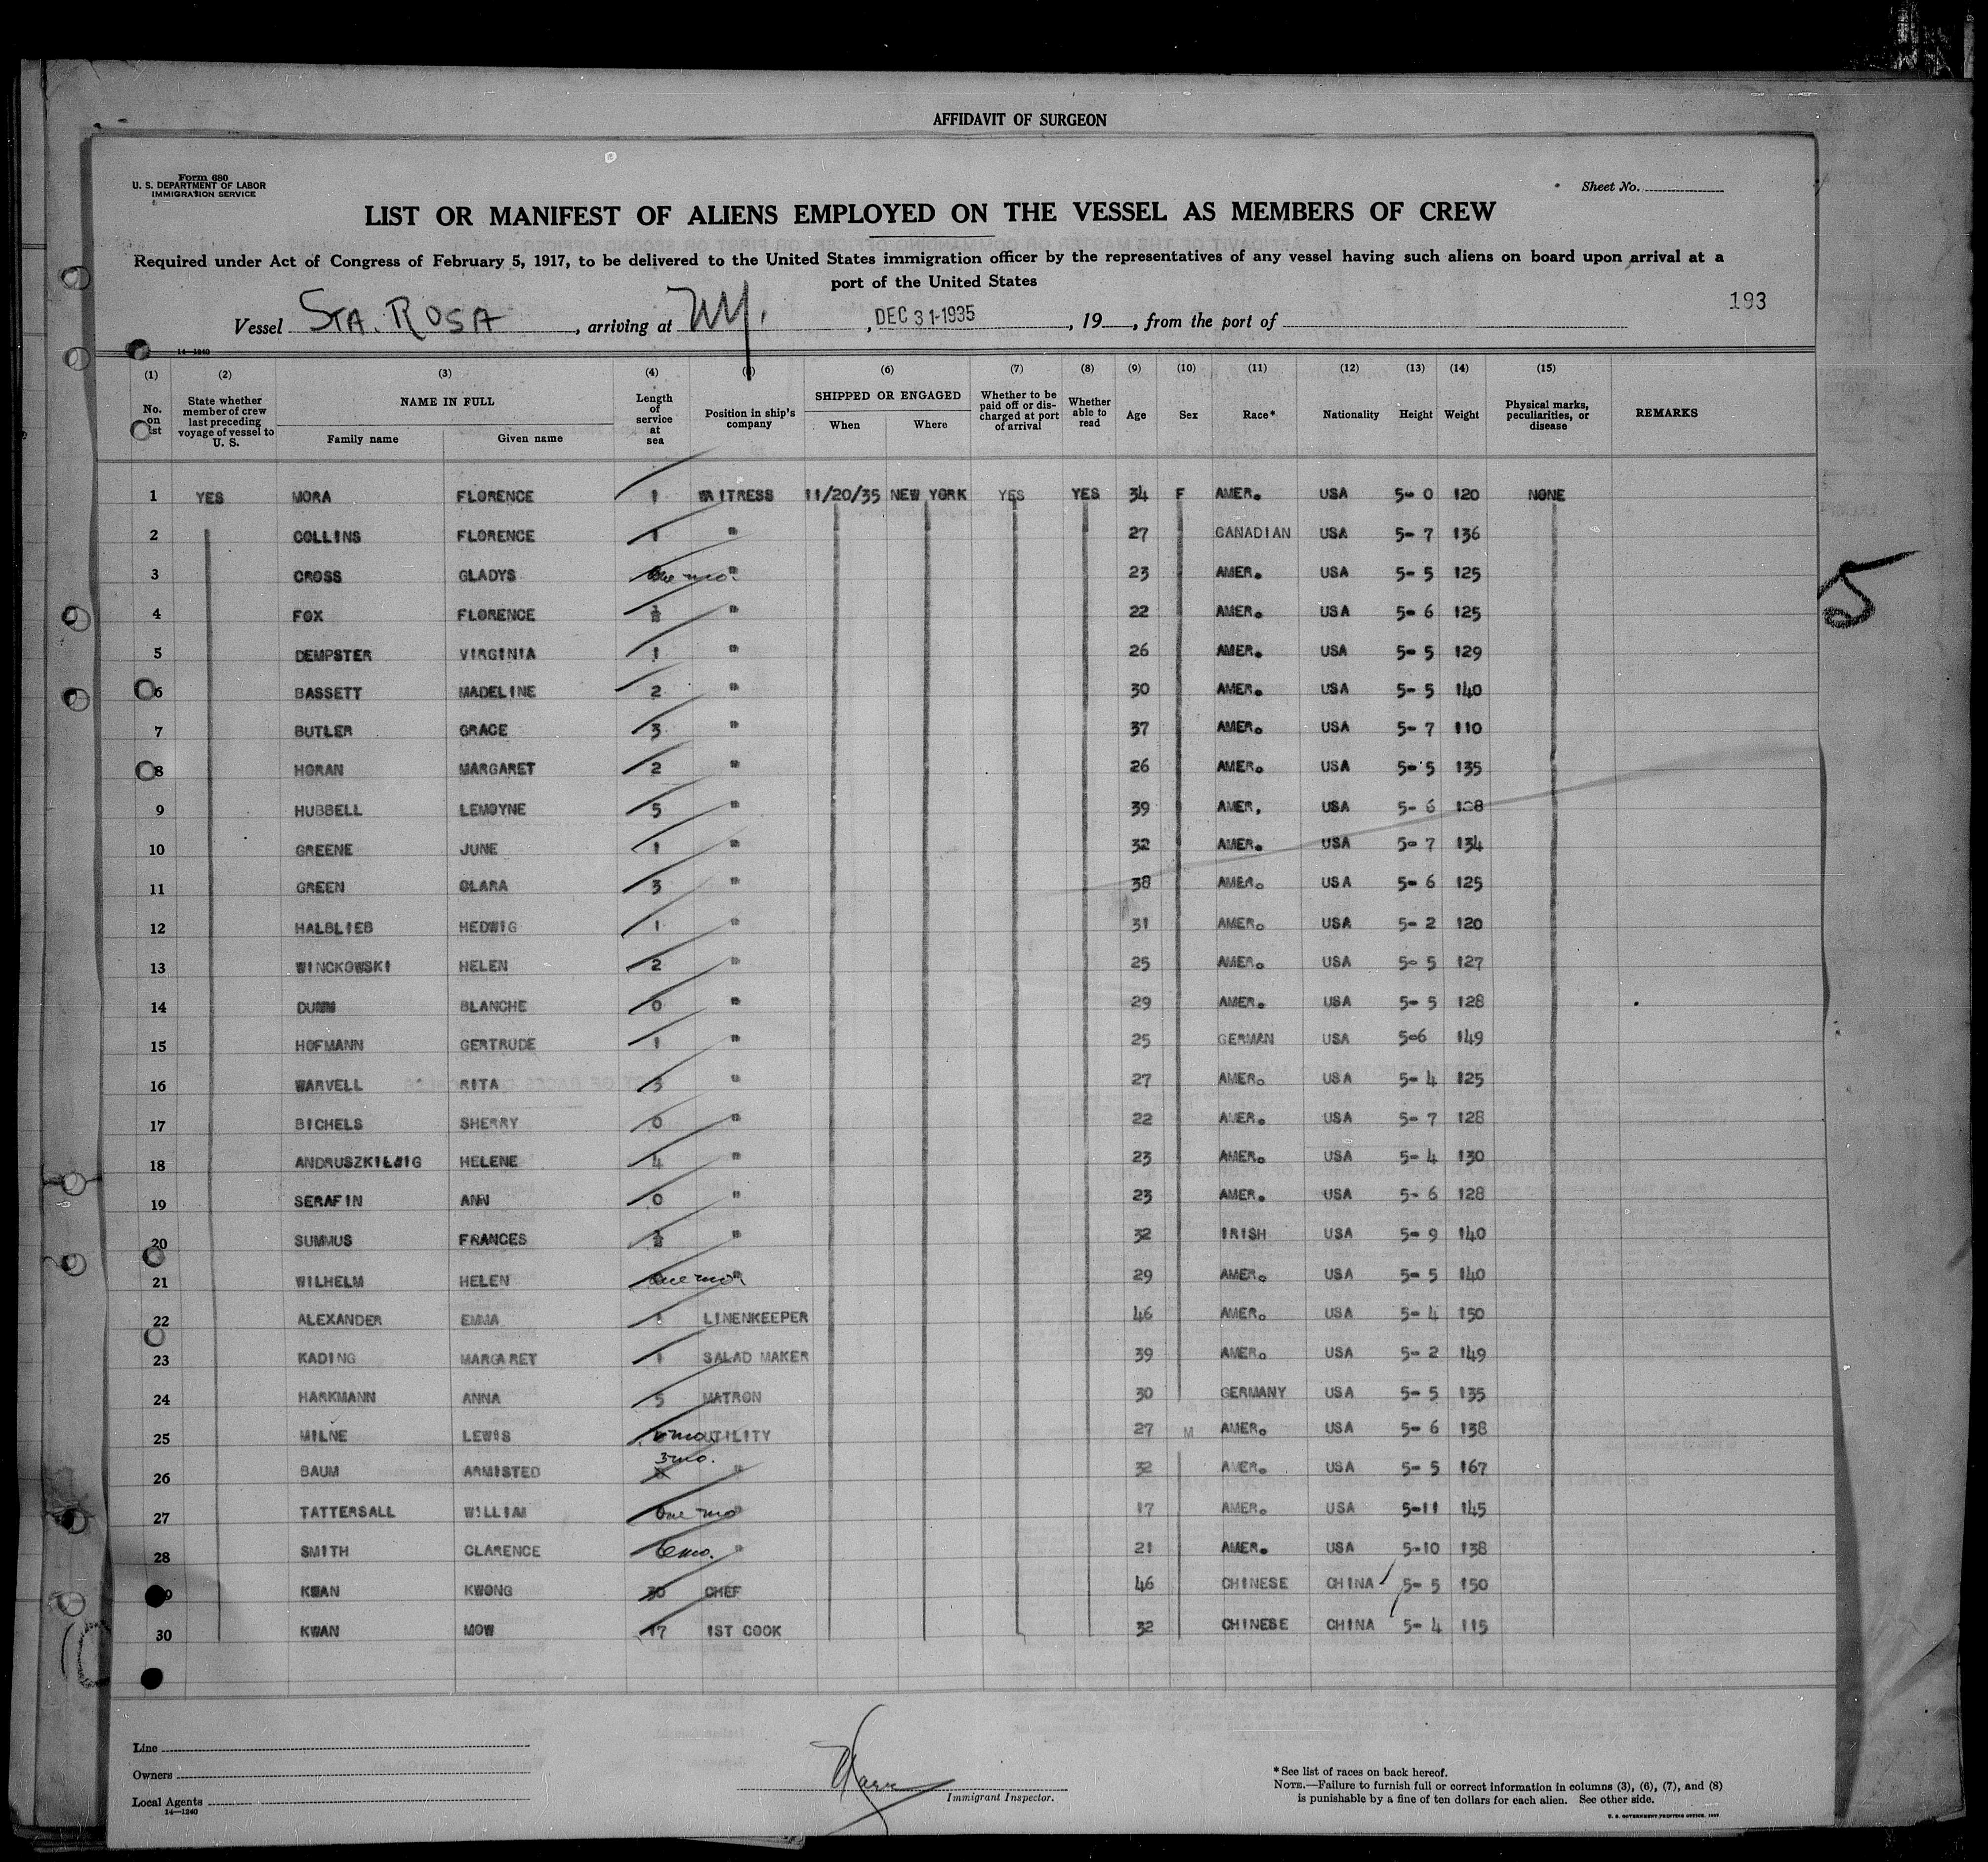 AFFIDAVIT OF SURGEON
Form 680
U. S. DEPARTMENT OF LABOR
IMMIGRATION SERVICE
Sheet No.
LIST OR MANIFEST OF ALIENS EMPLOYED ON THE VESSEL AS MEMBERS OF CREW
Required under Act of Congress of February 5, 1917, to be delivered to the United States immigration officer by the representatives of any vessel having such aliens on board upon arrival at a
port of the United States
193
Vessel STA. ROSA, arriving at NY., DEC 31-1935, 19, from the port of
14—1240
(1) (2) (3) (4) (6) (7) (8) (9) (10) (11) (12) (13) (14) (15)
No. on list State whether member of crew last preceding voyage of vessel to U. S. NAME IN FULL Family name Given name Length of service at sea Position in ship's company SHIPPED OR ENGAGED When Where Whether to be paid off or discharged at port of arrival Whether able to read Age Sex Race* Nationality Height Weight Physical marks, peculiarities, or disease REMARKS
1 YES MORA FLORENCE 1 WAITRESS 11/20/35 NEW YORK YES YES 34 F AMER. USA 5- 0 120 NONE
2 COLLINS FLORENCE 1 " 27 CANADIAN USA 5- 7 136
3 CROSS GLADYS One mo. " 23 AMER. USA 5- 5 125
4 FOX FLORENCE ½ " 22 AMER. USA 5- 6 125
5 DEMPSTER VIRGINIA 1 " 26 AMER. USA 5- 5 129
6 BASSETT MADELINE 2 " 30 AMER. USA 5- 5 140
7 BUTLER GRACE 3 " 37 AMER. USA 5- 7 110
8 HORAN MARGARET 2 " 26 AMER. USA 5- 5 135
9 HUBBELL LEMOYNE 5 " 39 AMER. USA 5- 6
10 GREENE JUNE 1 " 32 AMER. USA 5- 7 134
11 GREEN CLARA 3 " 38 AMER. USA 5- 6 125
12 HALBLIEB HEDWIG 1 31 AMER. USA 5- 2 120
13 WINCKOWSKI HELEN 2 " 25 AMER. USA 5- 5 127
14 DUNN BLANCHE 0 " 29 AMER. USA 5- 5 128
15 HOFMANN GERTRUDE 1 " 25 GERMAN USA 5-6 149
16 WARVELL RITA 3 " 27 AMER. USA 5- 4 125
17 BICHELS SHERRY 0 " 22 AMER. USA 5- 7 128
18 HELENE 4 " 23 AMER. USA 5- 4 130
19 SERAFIN ANN 0 " 23 AMER. USA 5- 6 128
20 SUMMUS FRANCES ½ " 32 IRISH USA 5- 9 140
21 WILHELM HELEN One mo " 29 AMER. USA 5- 5 140
22 ALEXANDER EMMA 1 LINENKEEPER 46 AMER. USA 5- 4 150
23 KADING MARGARET 1 SALAD MAKER 39 AMER. USA 5- 2 149
24 HARKMANN ANNA 5 MATRON 30 GERMANY USA 5- 5 135
25 MILNE LEWIS mo UTILITY 27 M AMER. USA 5- 6 138
26 BAUM ARMISTED 3 mo. " 32 AMER. USA 5- 5 167
27 TATTERSALL WILLIAM One mo " 17 AMER. USA 5-11 145
28 SMITH CLARENCE 6 mo. " 21 AMER. USA 5-10 138
29 KWAN KWONG 30 CHEF 46 CHINESE CHINA 5- 5 150
30 KWAN MOW 17 1ST COOK 32 CHINESE CHINA 5- 4 115
5
Line
Owners
Local Agents
14—1240
Immigrant Inspector.
*See list of races on back hereof.
NOTE.—Failure to furnish full or correct information in columns (3), (6), (7), and (8)
is punishable by a fine of ten dollars for each alien. See other side.